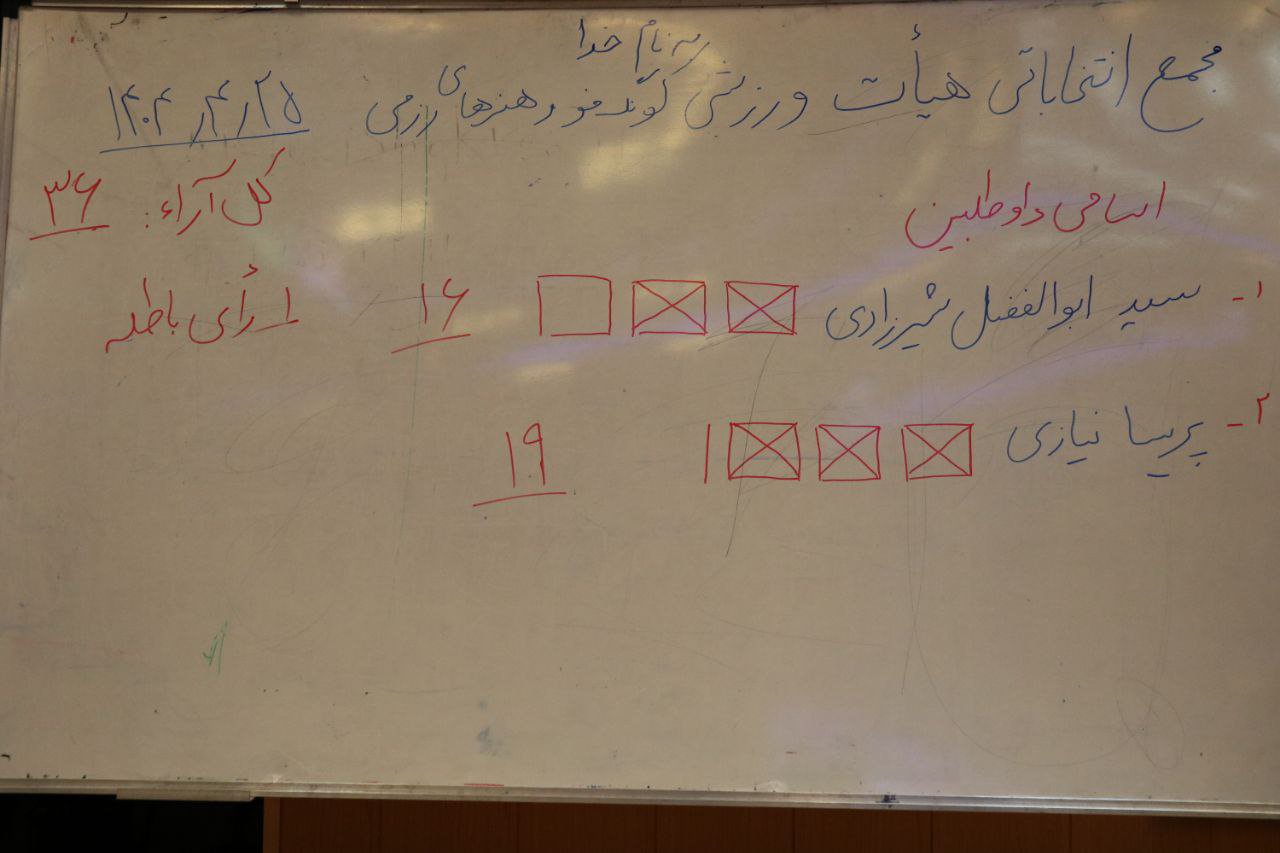 به نام خدا
مجمع انتخاباتی هیأت ورزشی کونگ فو و هنرهای رزمی ۱۴۰۴٫۴٫۲۵
اسامی داوطلبین
کل آراء: ۳۶
۱- سید ابوالفضل شیرزادی ۱۶
۱ رأی باطله
۲- پریسا نیازی ۱۹